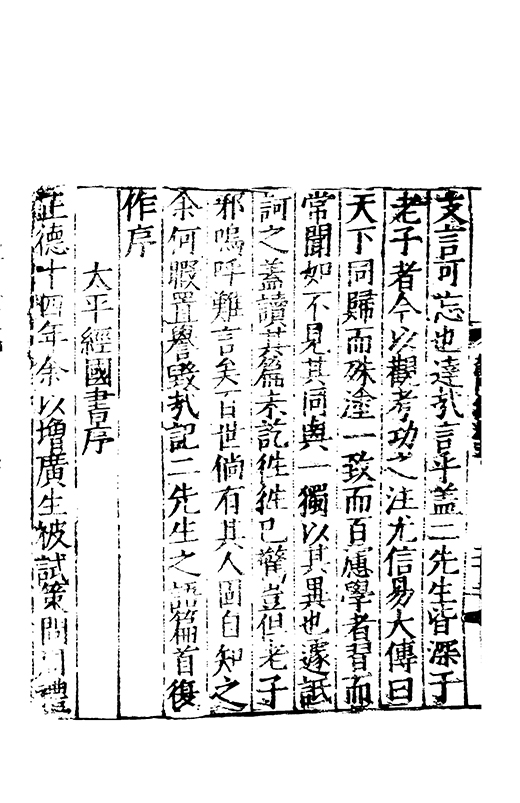 文言可忘也達哉言乎蓋二先生皆深于
老子者今以觀考功之注尤信易大傳曰
天下同歸而殊塗一致而百慮學者習而
常聞如不見其同與一獨以其異也遽詆
訶之蓋讀其篇未訖徃徃已驚豈但老子
邪嗚呼難言矣百世倘有其人固自知之
余何暇置譽毀哉記二先生之語篇首復
作序
太平經國書序
正德十四年余以增廣生被試策問周禮